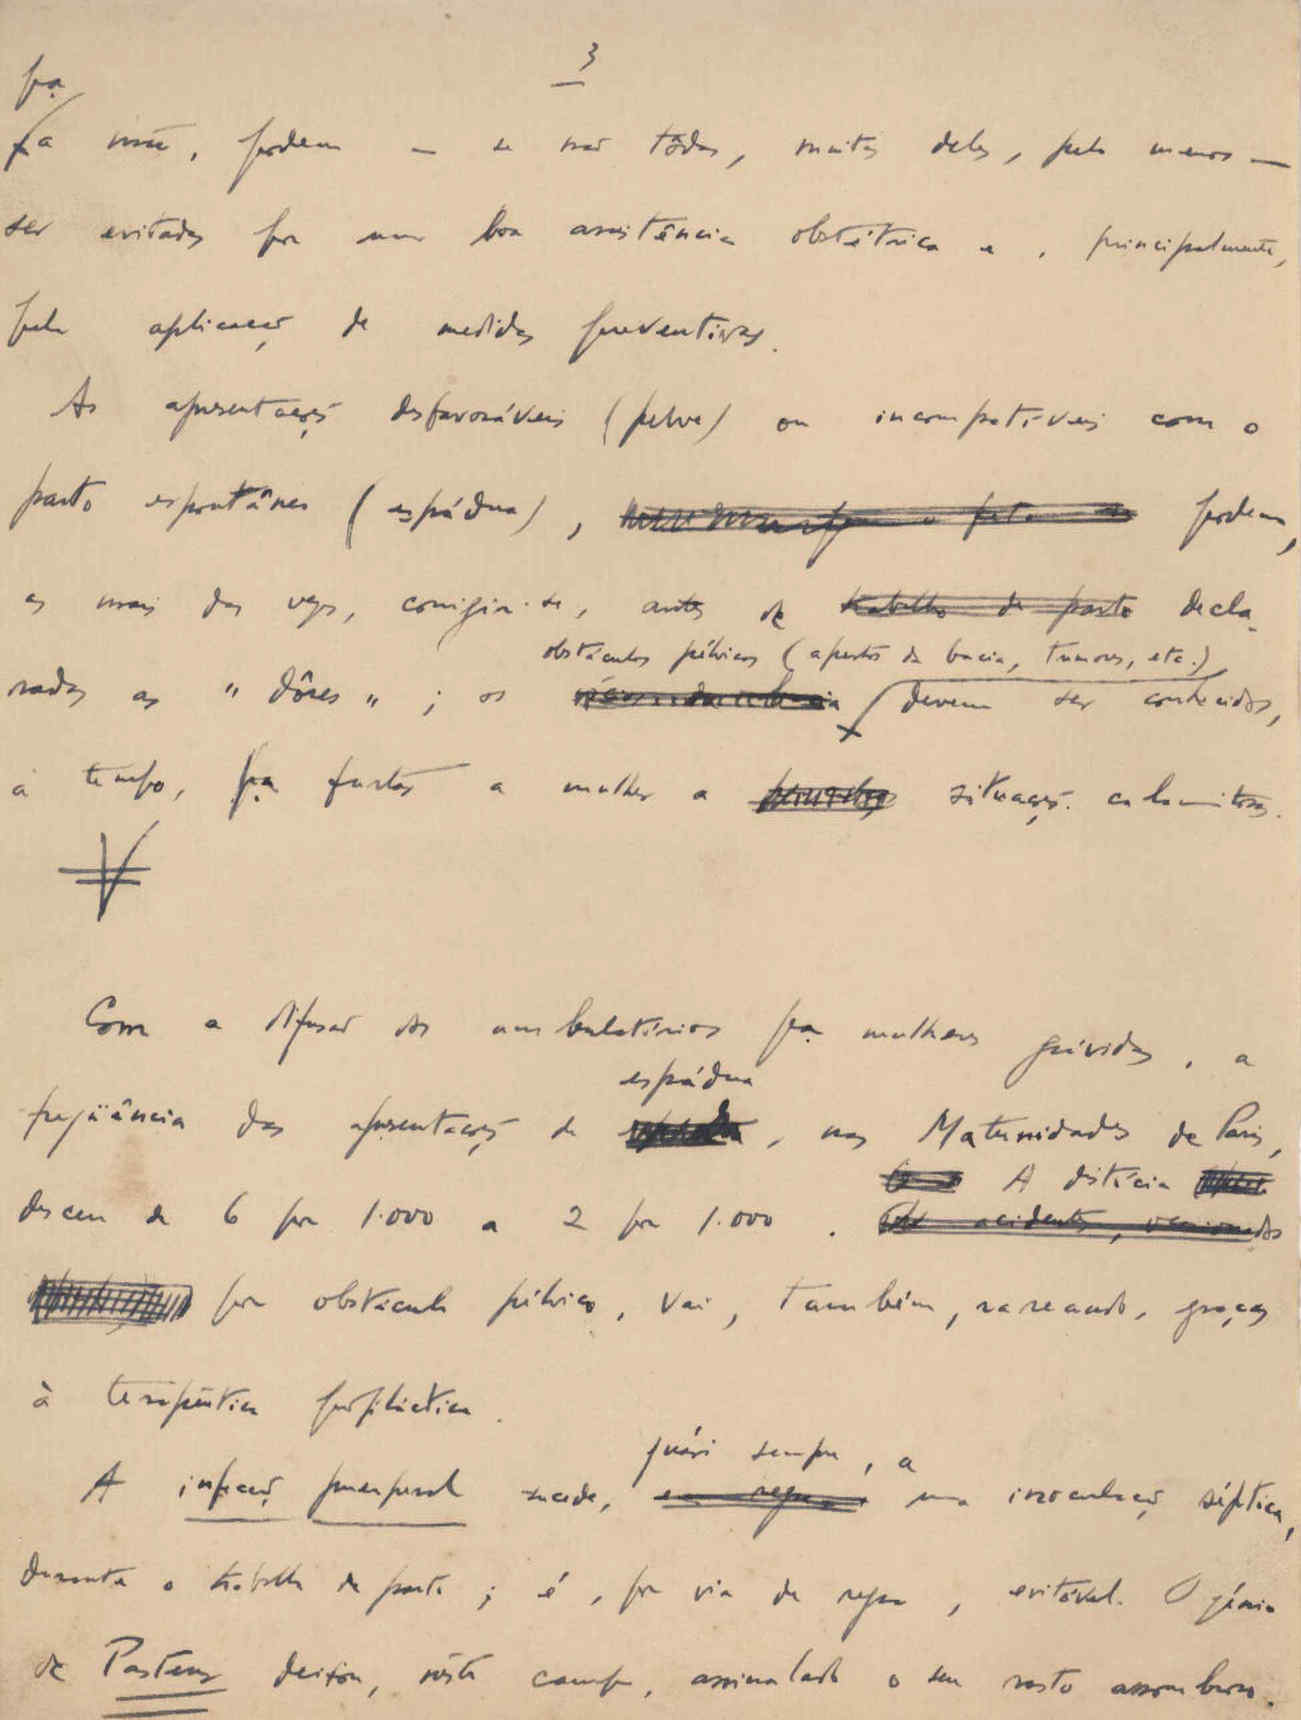 3
pa
a mãe, podem — se não tôdas, muitas delas, pelo menos —
ser evitadas por uma boa assistência obstétrica e, principalmente,
pela aplicação de medidas preventivas.
As apresentações desfavoráveis (pelve) ou incompatíveis com o
parto espontâneo (espádua), podem,
as mais das vezes, corrigir-se, antes de trabalho de parto decla-
obstáculos pélvicos (apertos da bacia, tumores, etc.)
radas as "dôres"; os devem ser conhecidos,
a tempo, pa furtar a mulher a situações calamitosas.
Com a difusão dos ambulatórios pa mulheres grávidas, a
espádua
freqüência das apresentações de , nas Maternidades de Paris,
A distócia
desceu de 6 por 1.000 a 2 por 1.000. acidentes, ocasionados
por obstáculo pélvico, vai, também, rareando, graças
à terapêutica profiláctica.
quási sempre, a
A infecção puerperal sucede, em regra uma inoculação séptica,
durante o trabalho de parto; é, por via de regra, evitável. O génio
de Pasteur deixou, neste campo, assinalado o seu rasto assombroso.